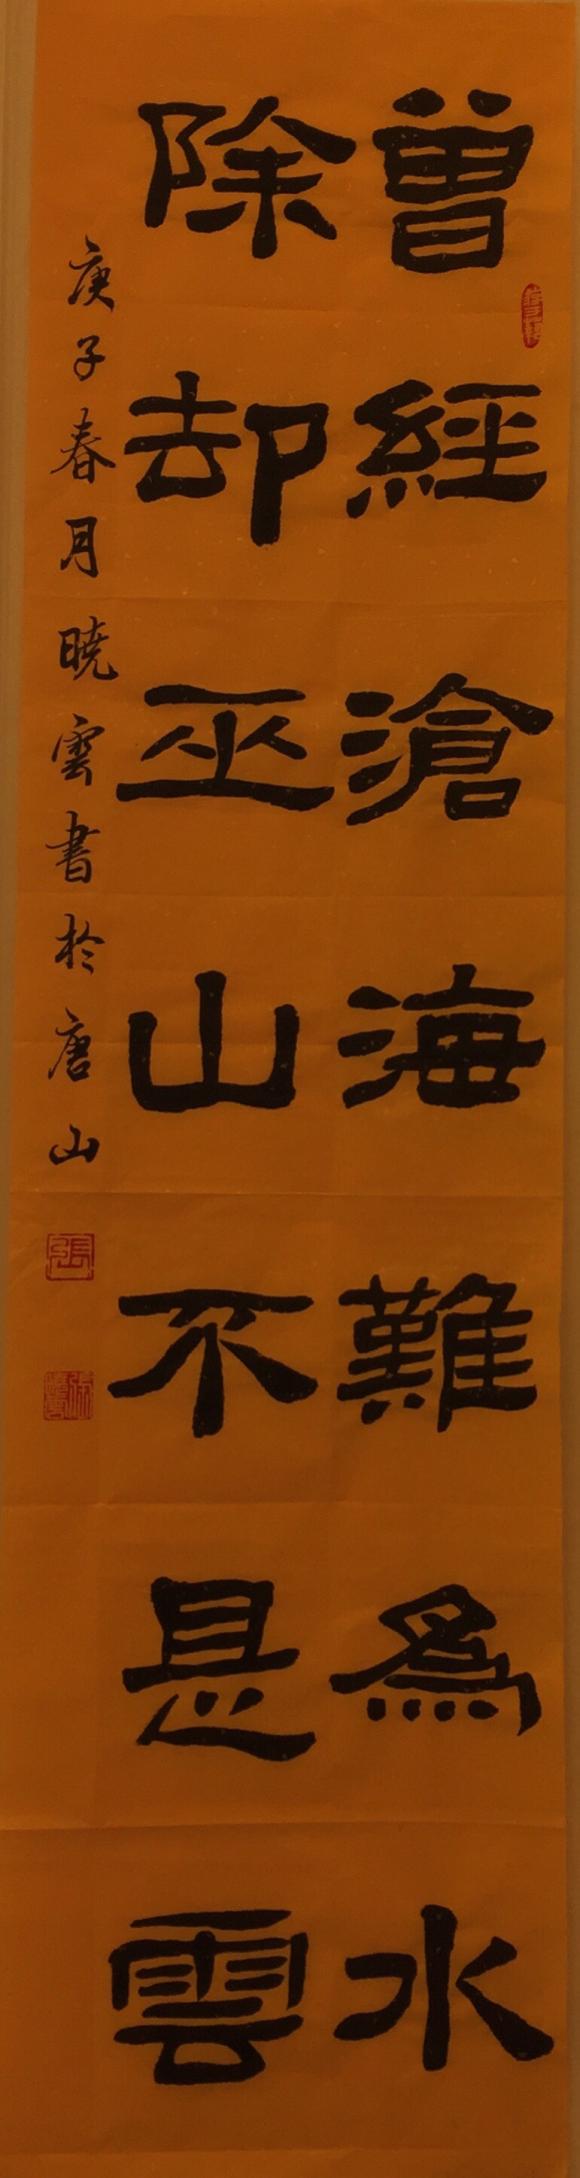 曾經滄海難為水
除却巫山不是雲
庚子春月曉雲書於唐山
張